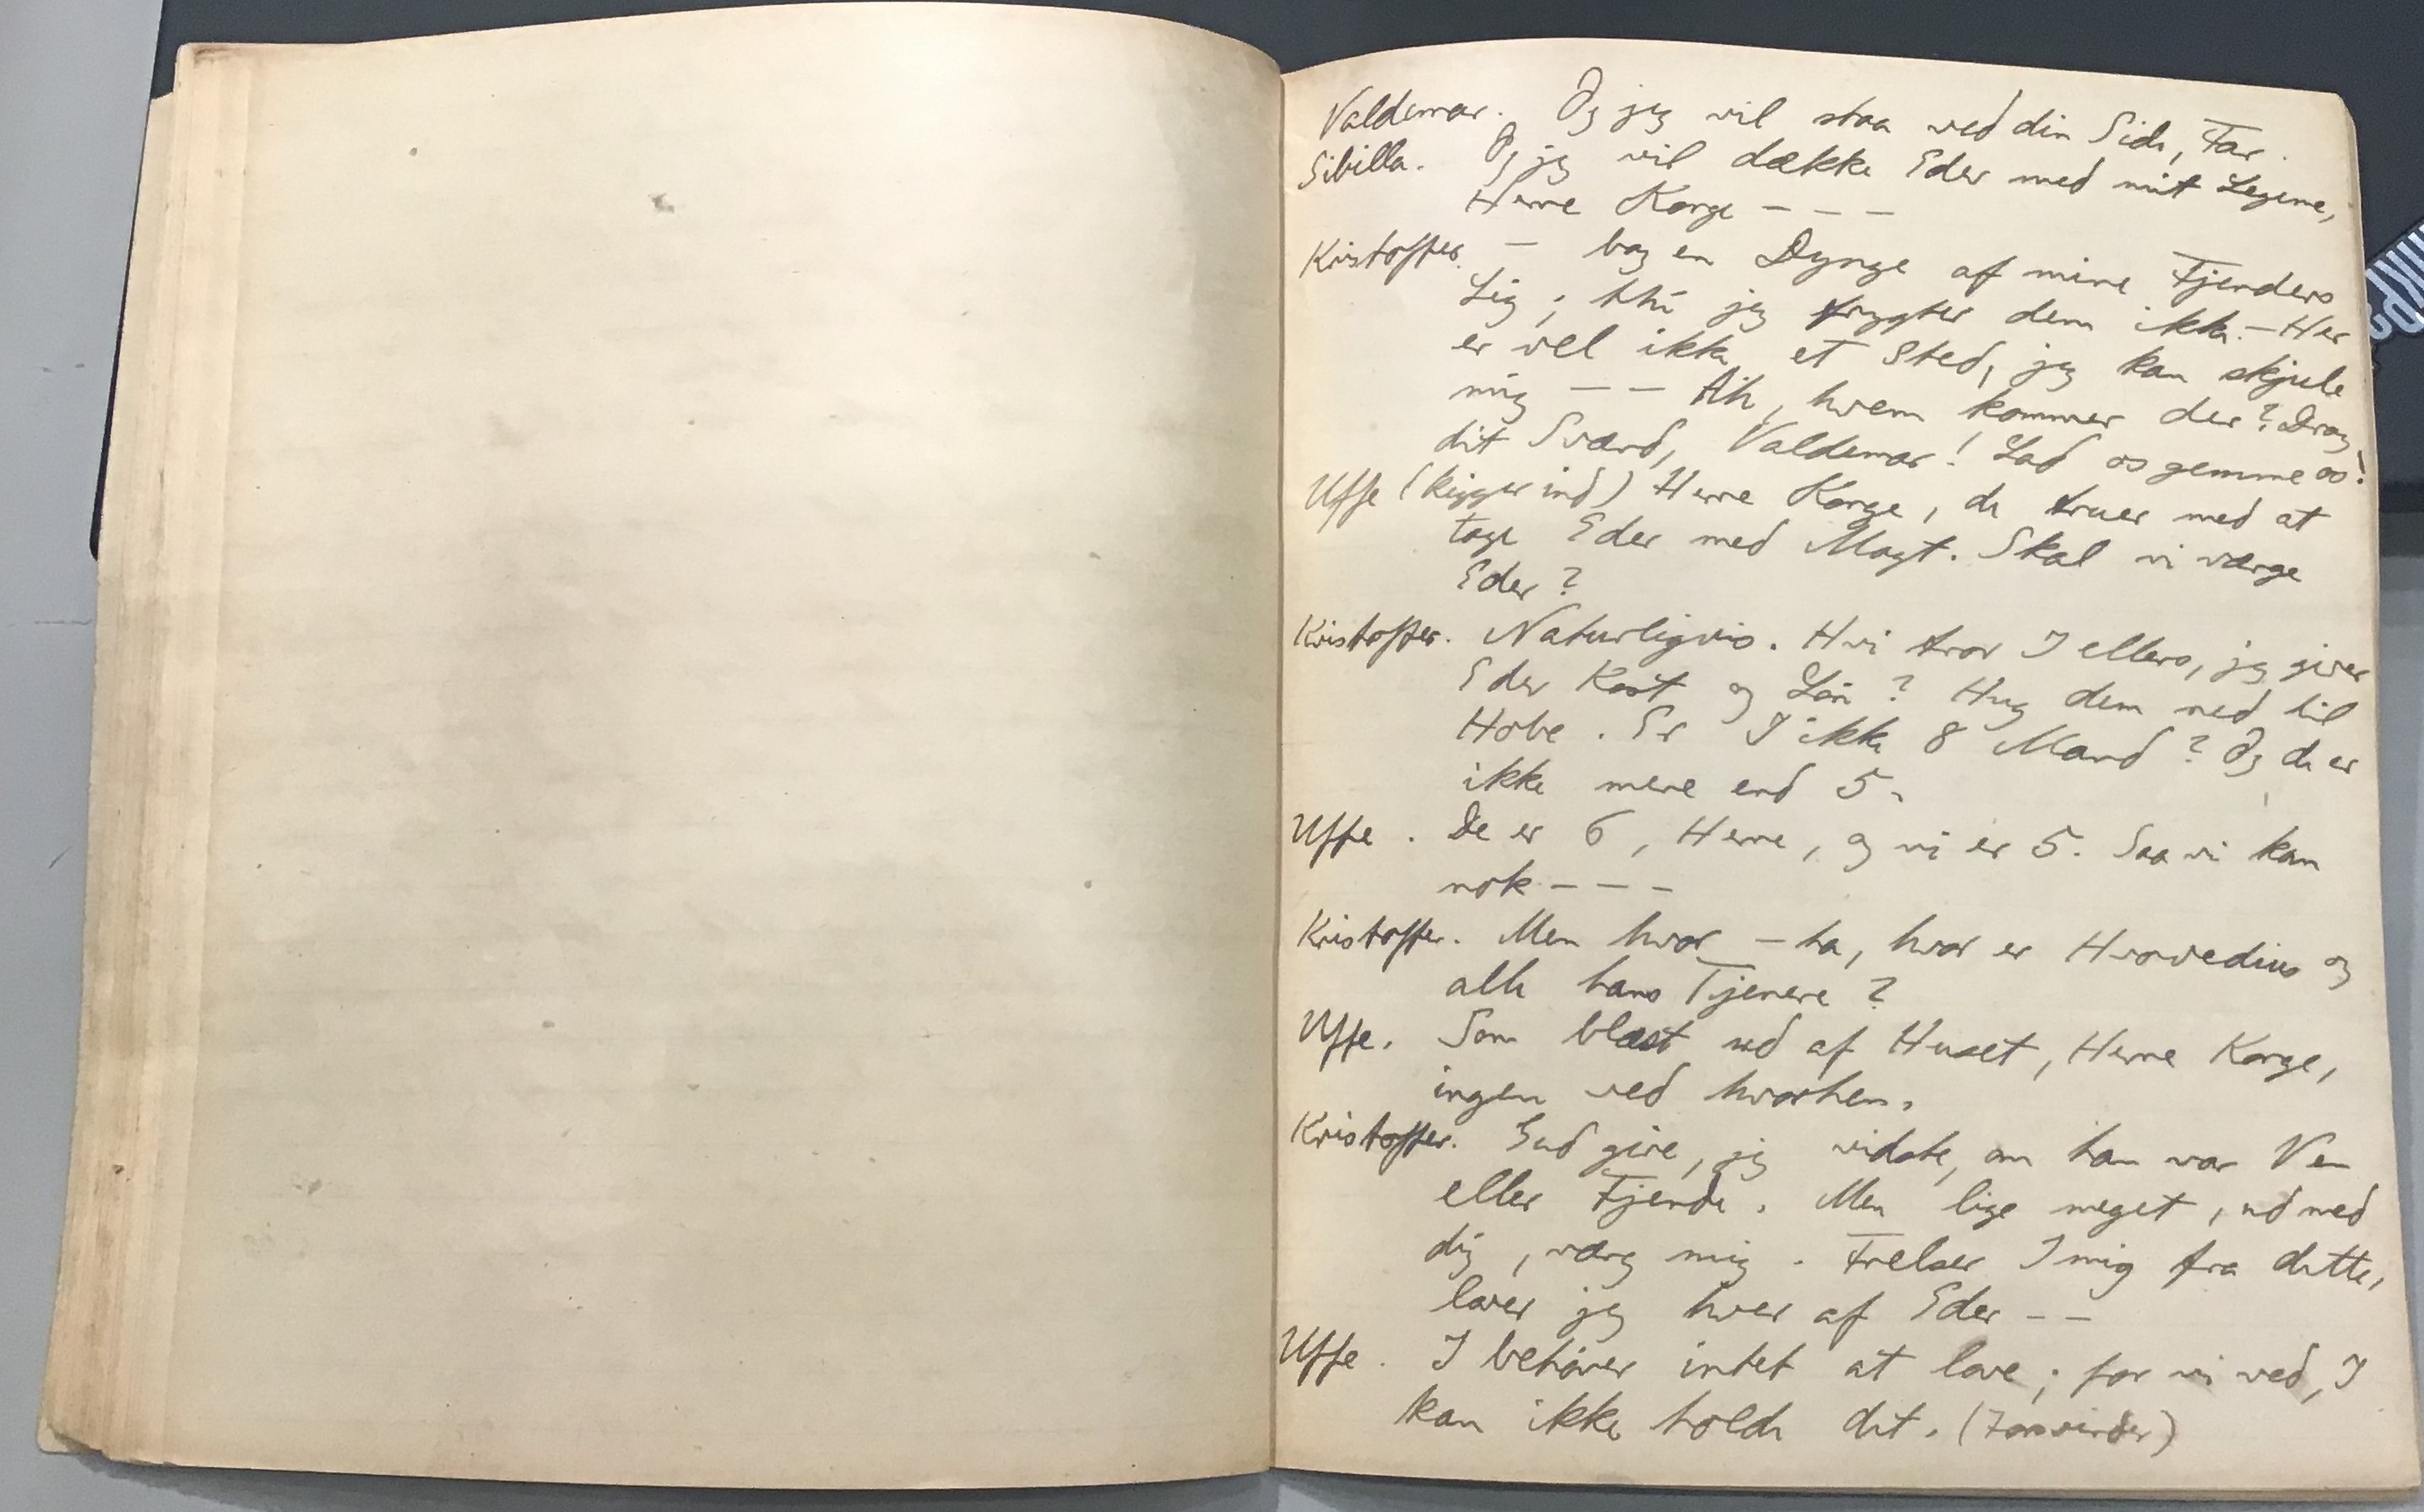 Valdemar. Og jeg vil staa ved din Side, Far.
Sibilla. Og jeg vil dække Eder med mit Legeme,
Herre Konge - - -
Kristoffer. - bag en Dynge af mine Fjenders
Lig; thi jeg frygter dem ikke. - Her
er vel ikke et Sted, jeg kan skjule
mig - - Ah, hvem kommer der? Drag
dit Sværd, Valdemar! Lad os gemme os!
Uffe (kigger ind) Herre Konge, de truer med at
tage Eder med Magt. Skal vi værge
Eder?
Kristoffer. Naturligvis. Hvi tror I ellers, jeg giver
Eder Kost og Løn? Hug dem ned til
Hobe. Er I ikke 8 Mand? Og de er
ikke mere end 5.
Uffe. De er 6, Herre, og vi er 5. Saa vi kan
nok - - -
Kristoffer. Men hvor - ha, hvor er
alle hans Tjenere?
Uffe. Som blæst ud af Huset, Herre Konge,
ingen ved hvorhen.
Kristoffer. Gud give, jeg vidste, om han var Ven
eller Fjende. Men lige meget, ud med
dig, værg mig. Frelser I mig fra dette,
lover jeg hver af Eder - -
Uffe. I behøver intet at love; for vi ved, I
kan ikke holde det. (Forsvinder)